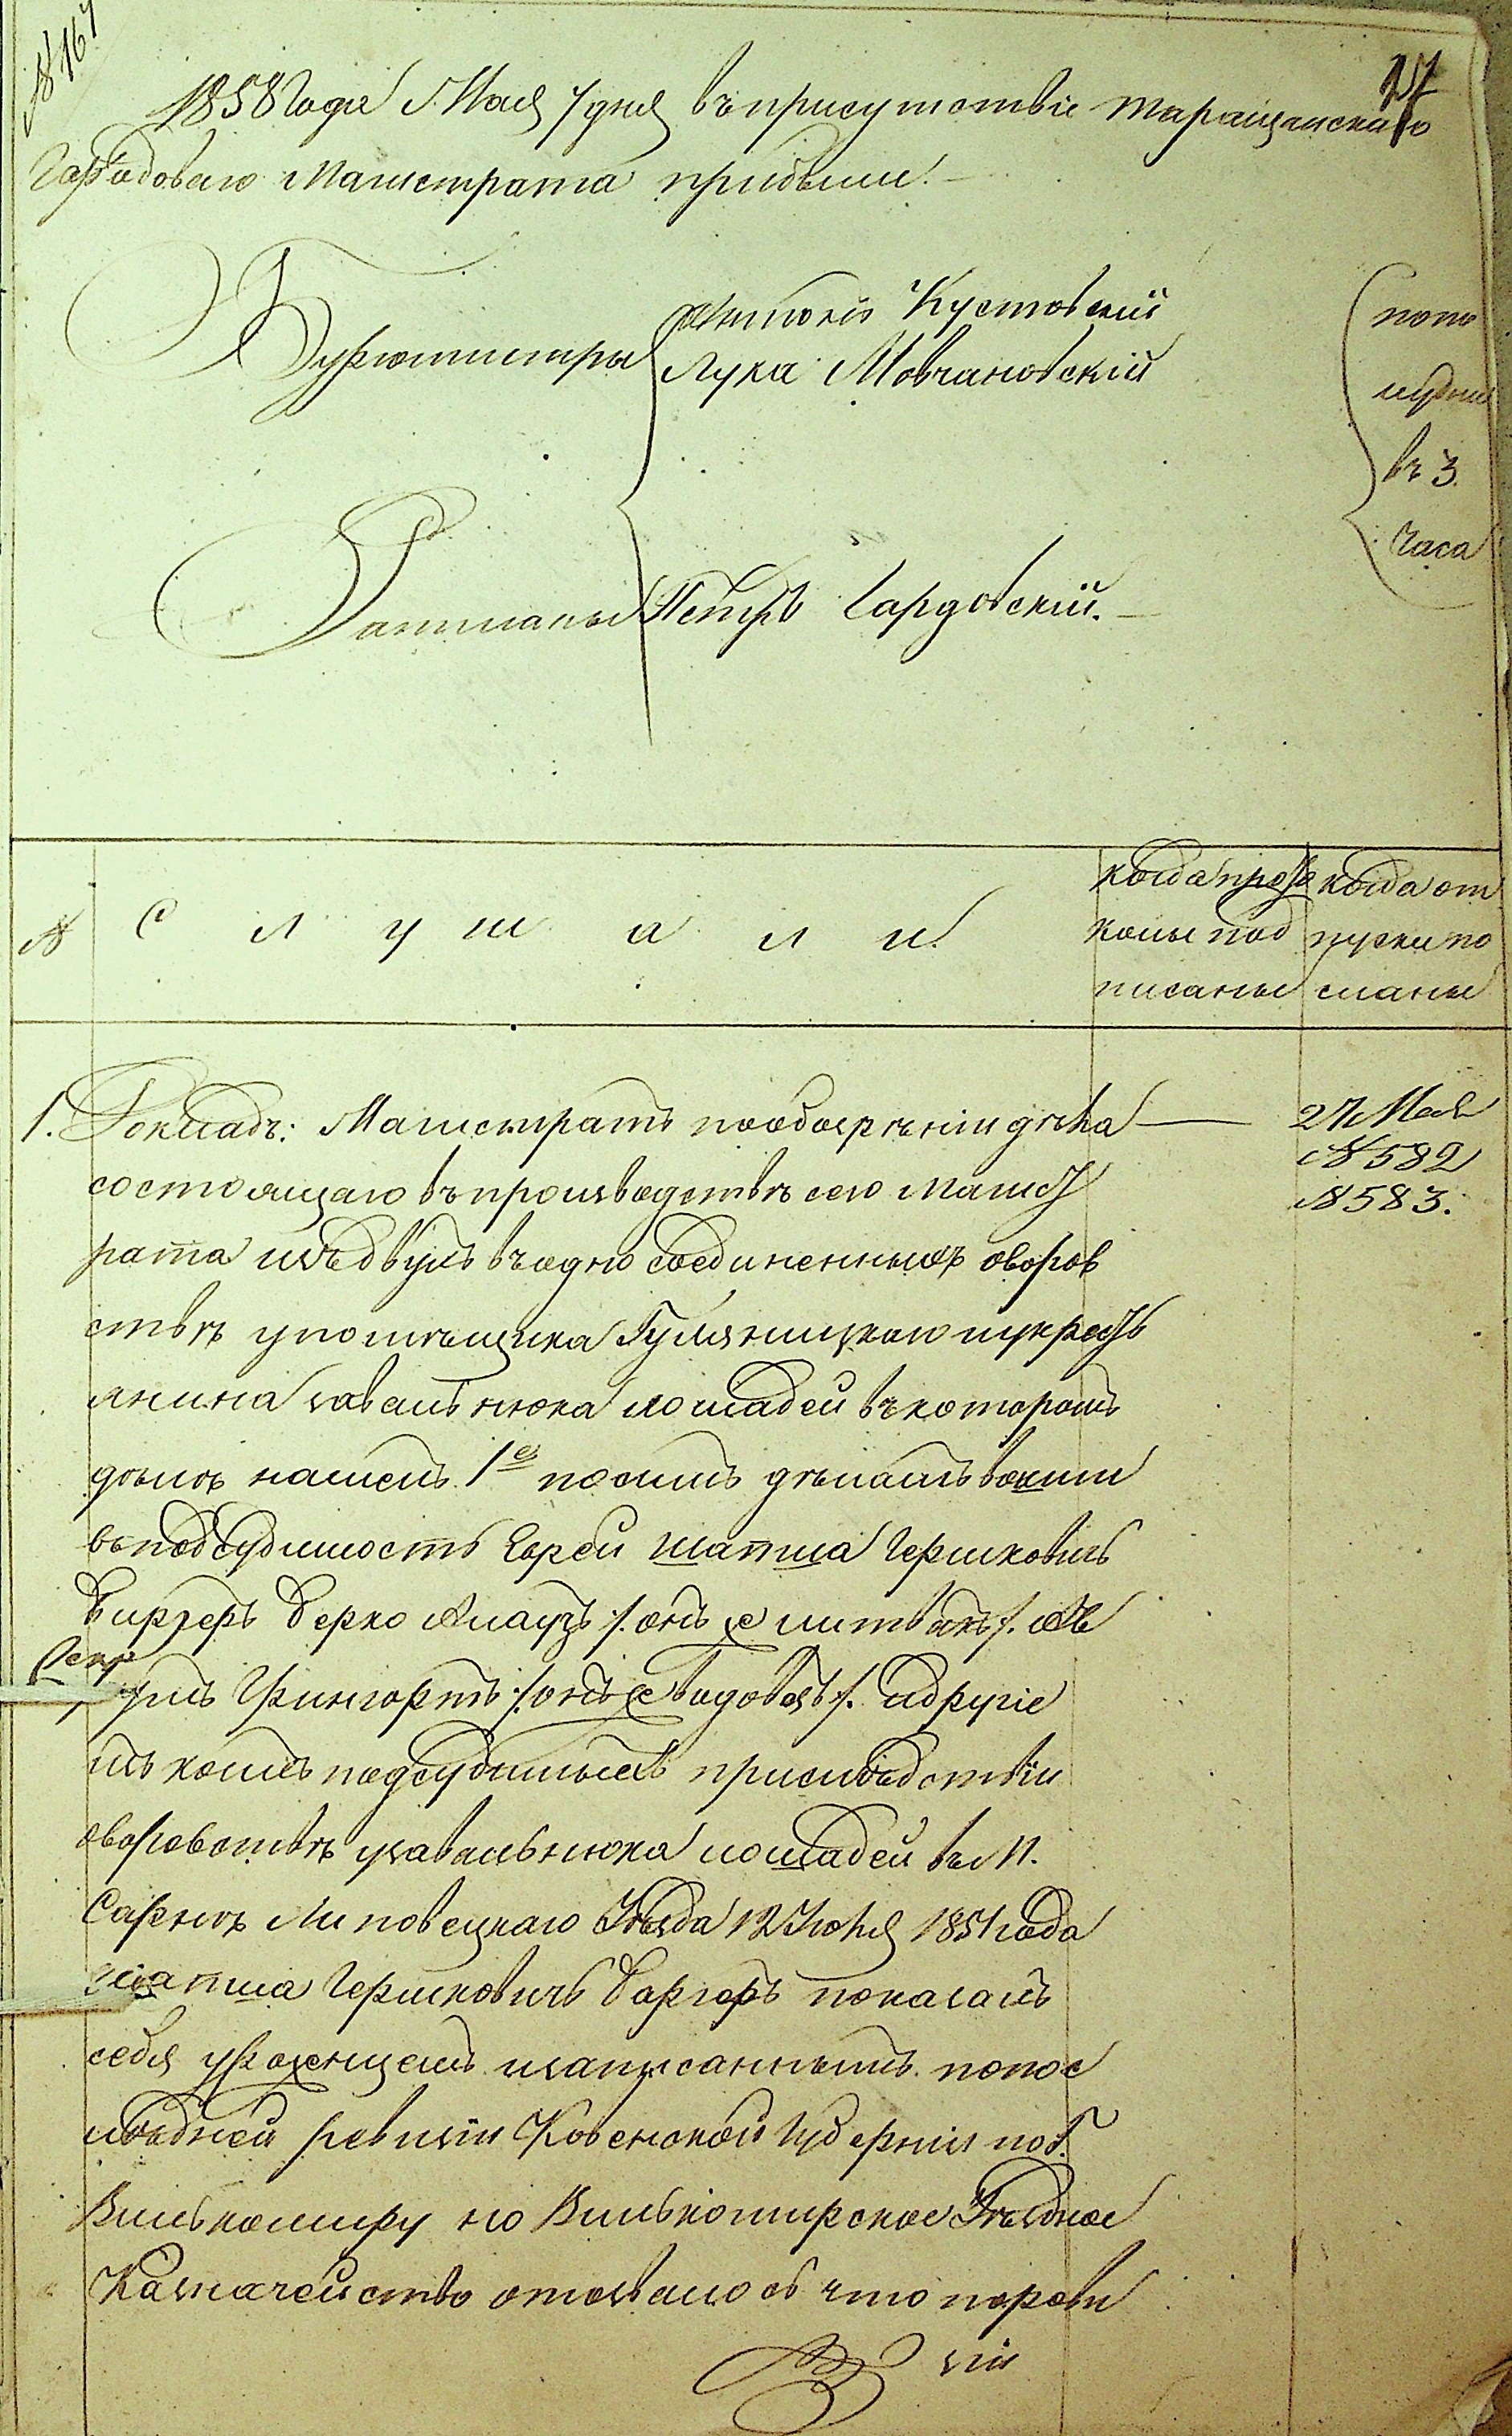 № 167
1858 Года Мая 7 дня въ присутствіе Таращанскаго
Городоваго Магистрата прибыли.
Бургомистры
Антоній Кустовскій
Лука Мовчановскій
Ратманы Петръ Гардовскій.
попо
лудни
въ 3
часа
№ С л у ш а л и.
когда прото
колы под
писаны
когда от
пуски по
сланы
1. Докладъ: Магистратъ пообозрѣніи дѣла
27 Мая
№ 582
№ 583.
состоящаго въ производствѣ сего Магист
рата изъ двухъ въ одно соединенныхъ о воров
ствѣ у помѣщика Гуляницкаго и у крестъ
янина Завальнюка лошадей въ которомъ
дѣлѣ нашелъ 1е по симъ дѣламъ вошли
въ подсудимость Евреи Шапша Гершковичъ
Берко онъ же Литвакъ
онъ же и другіе
изъ коихъ подсудимыхъ при слѣдствіи
о воровствѣ у Завальнюка лошадей въ М.
Сарнѣ Липовецкаго Уѣзда 12 Іюня 1851 года
Шапша Гершковичъ показалъ
себя урожденцемъ и записаннымъ по пос
лѣдней ревизіи Ковенской Губерніи по Г.
Вилькомиру но Вилькомирское Уѣздное
Казначейство отозвалось что по реви
зіи